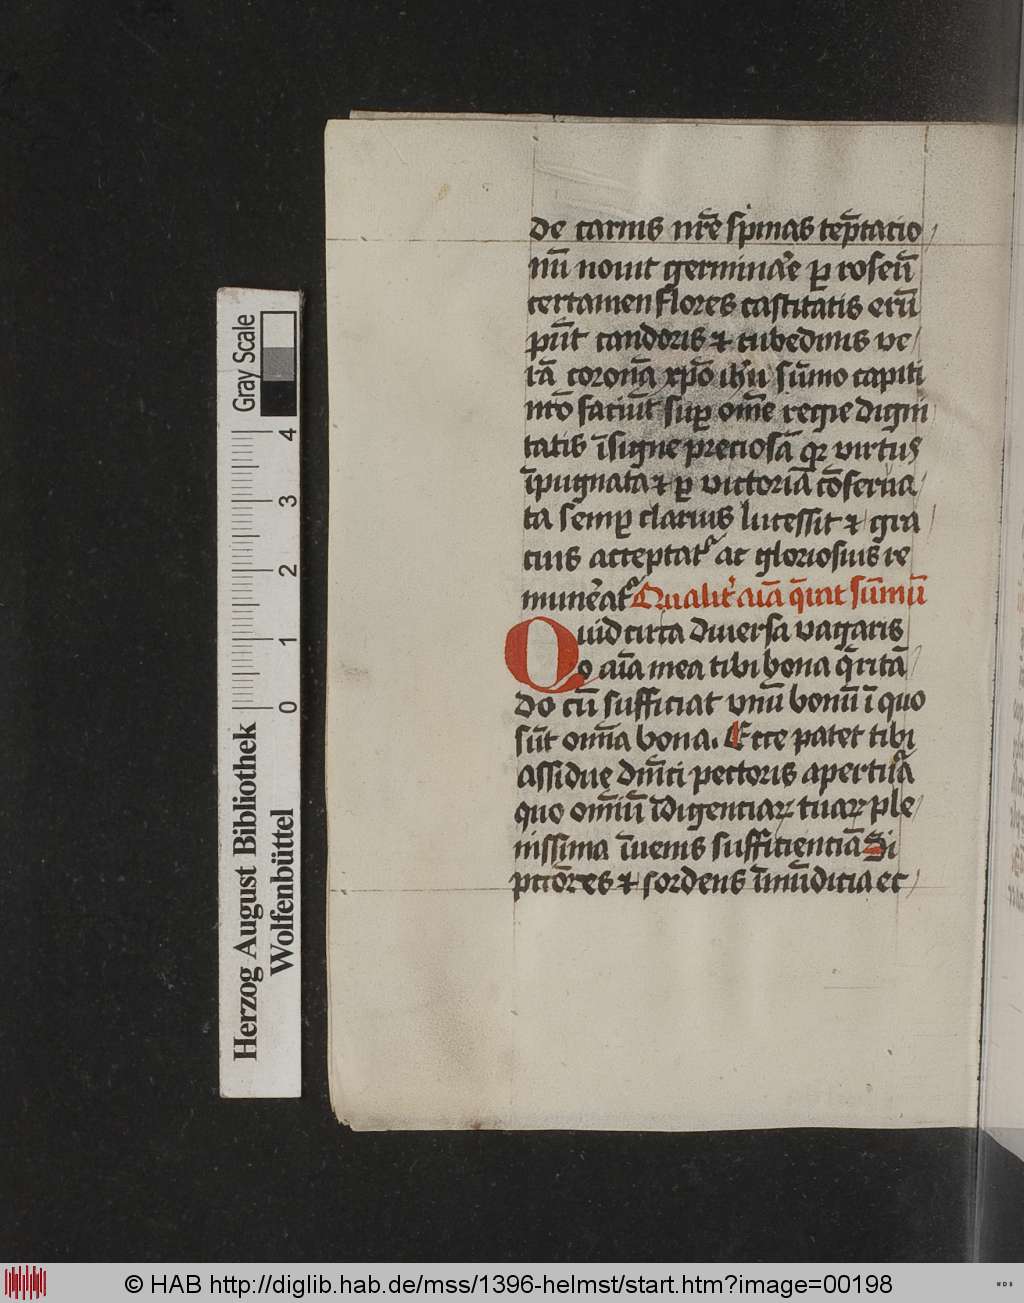 de carnis nr̄e spinas tēptacio
nū nouit germinar̄e ꝑ roseū
certamen flores castitatis erū
pūt candoris ⁊ rubedinis ve
rā coronā xp̄o ih̄u sūmo capiti
nr̄o faciūt suꝑ om̄e regie digni
tatis īsigne preciosā qꝛ virtus
īpugnata ⁊ ꝑ victoriā cōserua
ta semꝑ clarius lucessit ⁊ gra
cius acceptatᷣ ac gloriosius re
mun̄eatᷣ Qualitᷣ aīa q̄rat sūmū
Quid circa diuersa vagaris
o aīa mea tibi bona q̄ritā
do cū sufficiat vnū bonū ī quo
sūt om̄ia bona. Ecce patet tibi
assidue dn̄ici pectoris aperturᷓa
quo om̄iū īdigenciaꝝ tuaꝝ ple
nissima īuenis sufficienciā Si
pctōres ⁊ sordens īmūdicia et
Herzog August Bibliothek
Wolfenbüttel
0 1 2 3 4
Gray Scale
© HAB http://diglib.hab.de/mss/1396-helmst/start.htm?image=00198
WDB